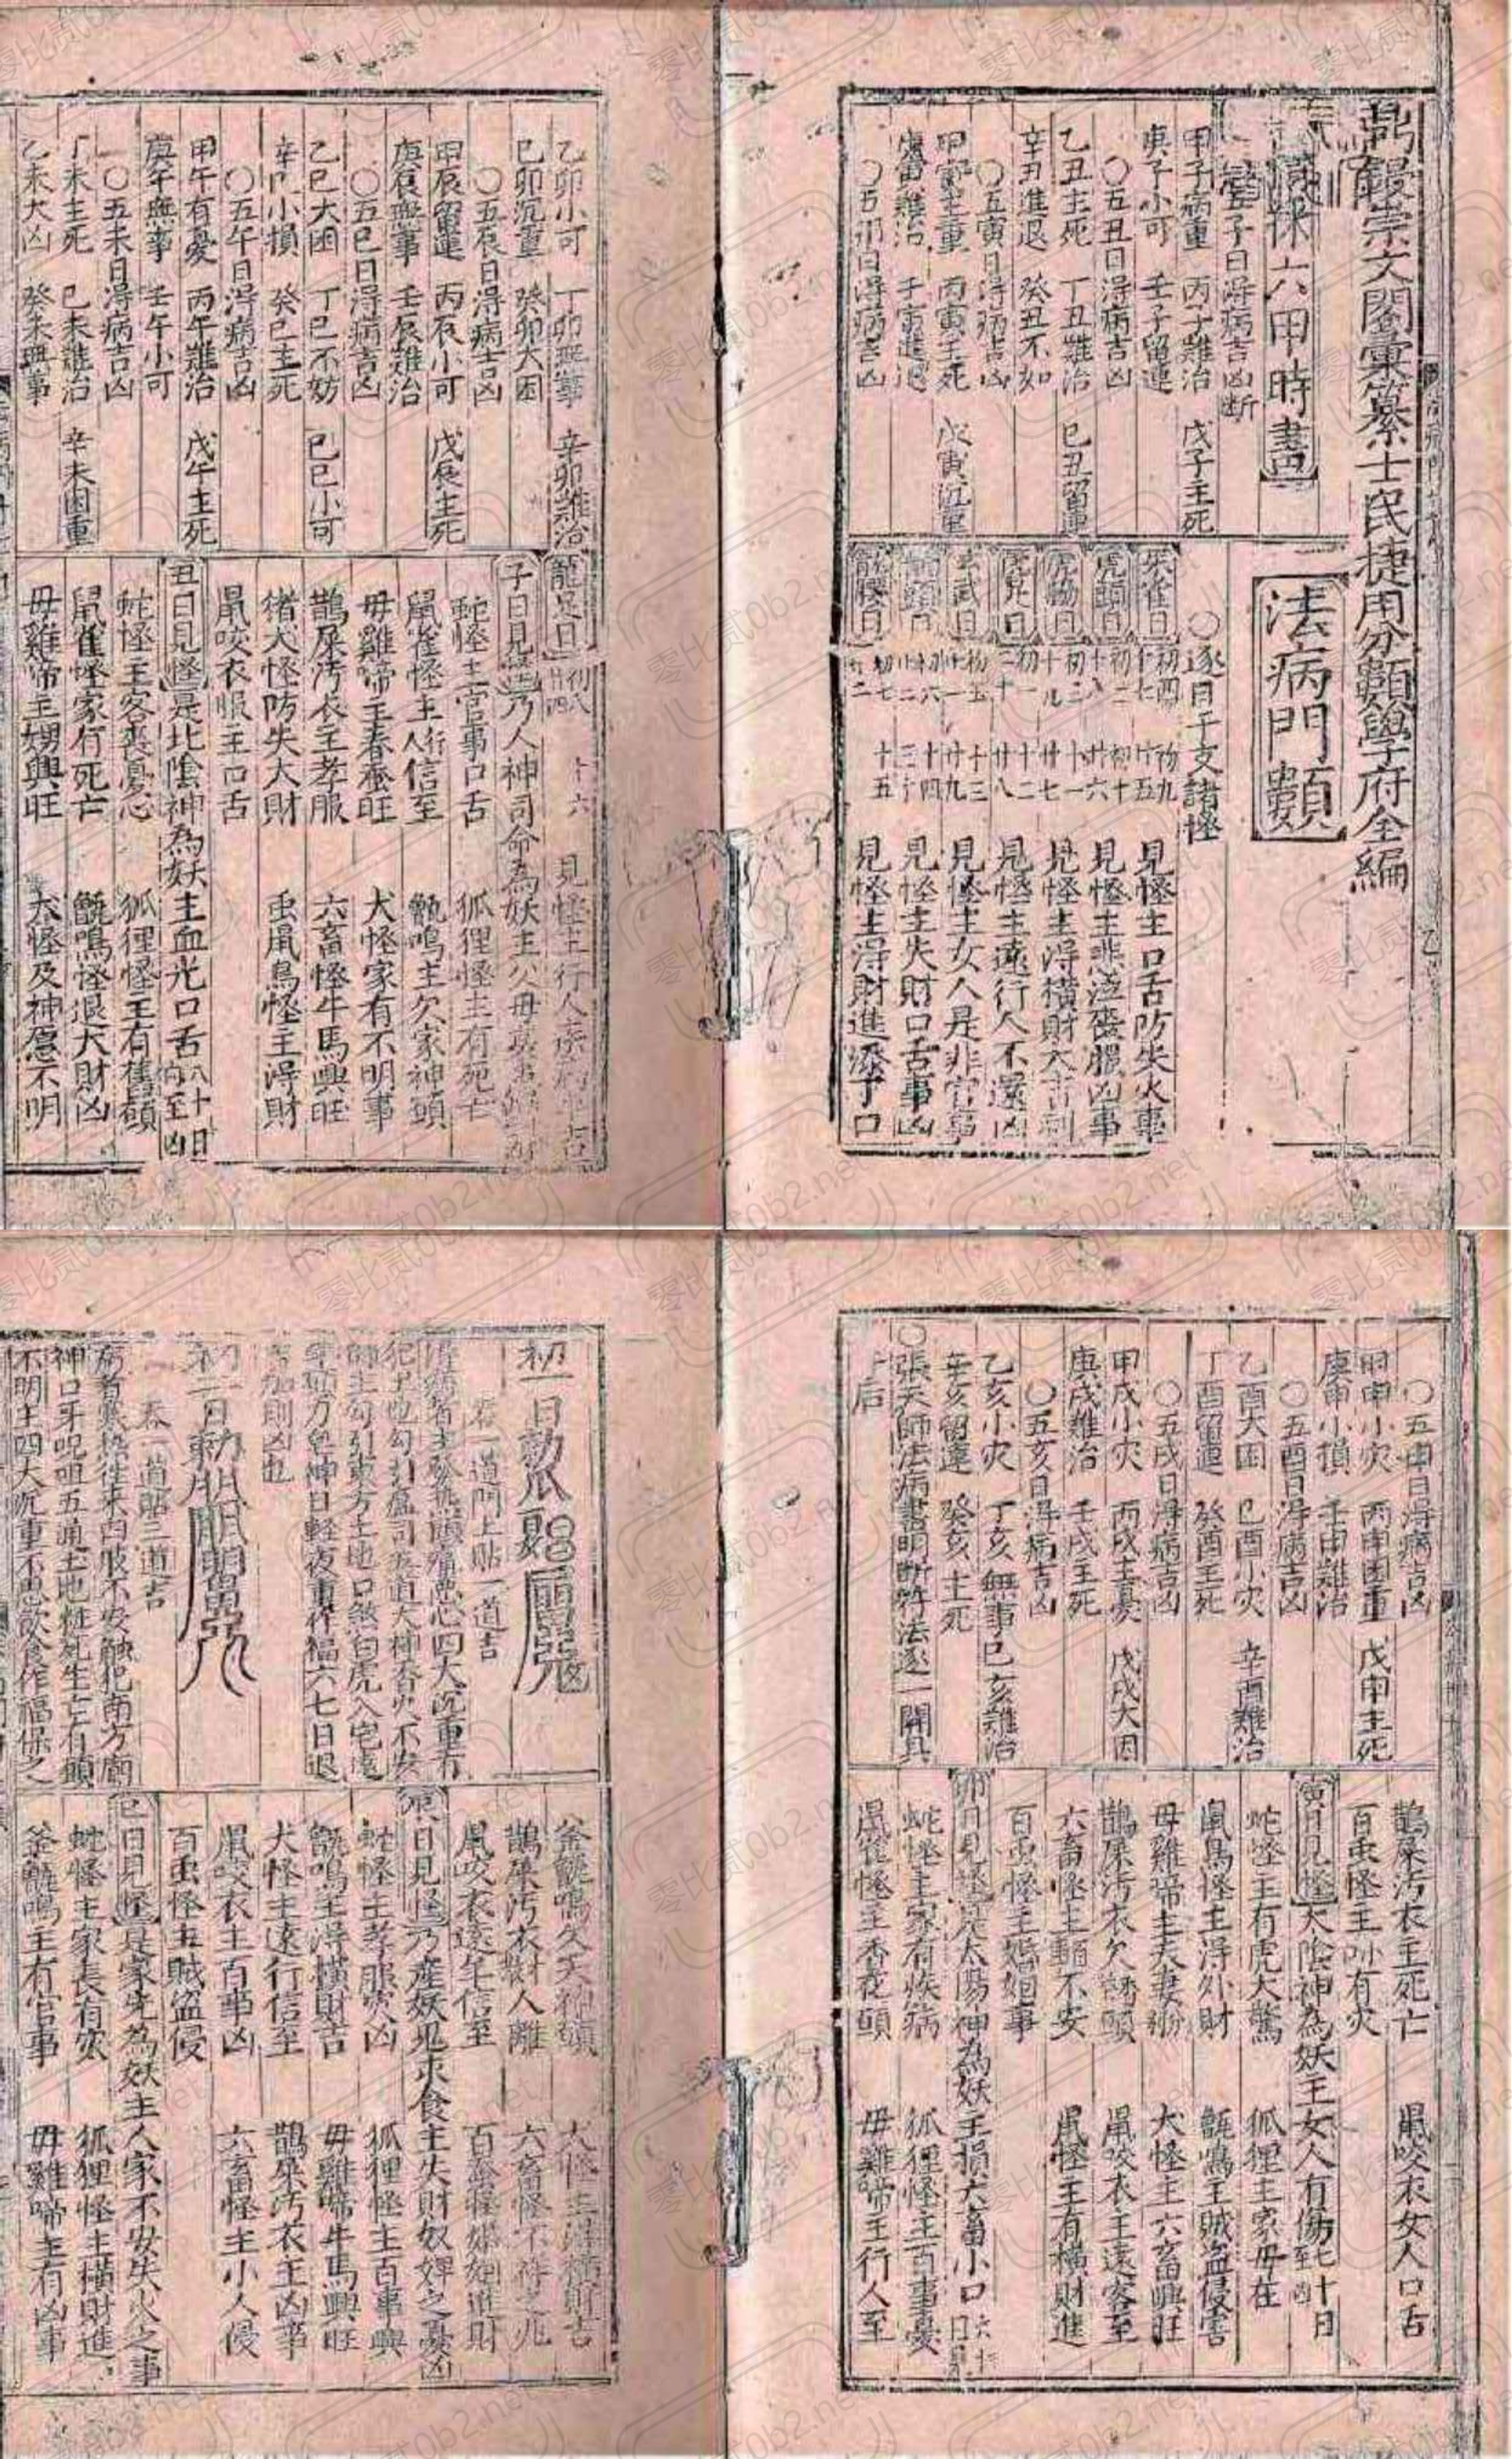 鼎鍥崇文閣彙纂士民捷用分類學府全編
法病門類
六甲時書
五子日得病吉凶断
甲子病重 丙子難治 戊子主死
庚子小可 壬子留連
〇五丑日得病吉凶
乙丑主死 丁丑難治 己丑留連
辛丑進退 癸丑不如
〇五寅日得病吉凶
甲寅主重 丙寅主死 戊寅沉重
庚寅難治 壬寅進退
〇五卯日得病吉凶
〇逐日干支諸怪
朱雀日 初四 十七 初九 廿五 見怪主口舌防失火事
虎頭日 初二 十八 初十 廿六 見怪主悲泣喪服凶事
虎脇日 初三 十九 十一 廿七 見怪主得橫財大吉利
虎足日 初一 二十 十二 廿八 見怪主遠行人不還凶
玄武日 初五 十一 十三 廿九 見怪主女人是非官事
初六 十四 三十 見怪主失財口舌事凶
初七 十五 見怪主得財進添子口
乙卯小可 丁卯無事 辛卯難治
己卯沉重 癸卯大困
〇五辰日得病吉凶
甲辰留連 丙辰小可 戊辰主死
庚辰無事 壬辰難治
〇五巳日得病吉凶
乙巳大困 丁巳不妨 己巳小可
辛巳小損 癸巳主死
〇五午日得病吉凶
甲午有憂 丙午難治 戊午主死
庚午無事 壬午小可
〇五未日得病吉凶
丁未主死 己未難治 辛未困重
乙未大凶 癸未無事
龍足日 初八 廿四 十六 見怪主行人
子日見怪乃人神司命為妖主公母
蛇怪主官事口舌 狐狸怪主有死亡
鼠雀怪主人行信至 甑鳴主欠家神頭
毋雞啼主春蚕旺 犬怪家有不明事
鵲屎污衣主孝服 六畜怪牛馬興旺
猪犬怪防失大財 虫鼠鳥怪主得財
鼠咬衣服主口舌
丑日見怪是北陰神為妖主血光口舌八十日內至凶
蛇怪主客喪憂心 狐狸怪主有舊頭
鼠雀怪家有死亡 甑鳴怪退大財凶
毋雞啼主娚興旺 犬怪及神愿不明
〇五申日得病吉凶
甲申小灾 丙申困重 戊申主死
庚申小損 壬申難治
〇五酉日得病吉凶
乙酉大困 己酉小灾 辛酉難治
丁酉留連 癸酉主死
〇五戌日得病吉凶
甲戌小灾 丙戌主憂 戊戌大困
庚戌難治 壬戌主死
〇五亥日得病吉凶
乙亥小灾 丁亥無事 己亥難治
辛亥留連 癸亥主死
〇張天師法病書明断符法逐一開具
于后
鵲屎污衣主死亡 鼠咬衣女人口舌
百虫怪主小有灾
寅日見怪太陰神為妖主女人有傷七十日至凶
蛇怪主有虎犬驚 狐狸主家毋在
鼠鳥怪主得外財 甑鳴主賊盗侵害
毋雞啼主夫妻 犬怪主六畜興旺
鵲屎污衣欠 頭 鼠咬衣主遠客至
六畜怪主 不安 鼠怪主有橫財進
百虫怪主婚姻事
卯日見怪是太陽神為妖主損六畜小口
蛇怪主家有疾病 狐狸怪主百事憂
鼠雀怪主香花頭 毋雞啼主行人至
初一日
卷一道門上貼一道吉
得病者主發熱頭痛惡心四大沉重有
犯土也勾引盧司五道大神香火不安
師主勾引東方土地口煞白虎入宅遠
年 方鬼神日輕夜重作福六七日退
加則凶也
初二日
吞一道貼三道吉
病者寒热往来四肢不安触犯南方廟
神口牙呪咀五通土地枉死生亡有頭
不明主四大沉重不思飲食作福保之
釜甑鳴欠天神頭 犬怪主得橫財吉
鵲屎污衣財人離 六畜怪不祥之兆
鼠咬衣遠年信至 百虫怪婚姻進財
辰日見怪乃產妖鬼求食主失財奴婢之憂凶
蛇怪主孝服哭凶 狐狸怪主百事興
甑鳴主得橫財吉 毋雞啼牛馬興旺
犬怪主遠行信至 鵲屎污衣主凶事
鼠咬衣主百事凶 六畜怪主小人侵
百虫怪主賊盗侵
巳日見怪是家先為妖主人家不安失火之事
蛇怪主家長有灾 狐狸怪主橫財進
釜甑鳴主有官事 毋雞啼主有凶事